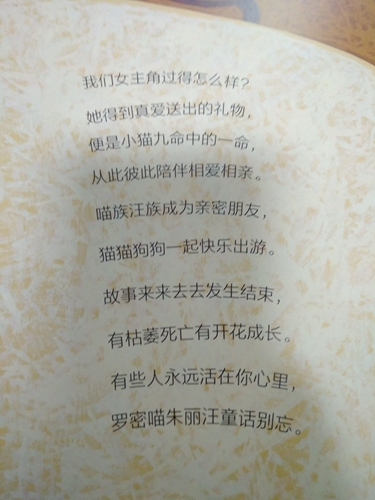 我们女主角过得怎么样?
她得到真爱送出的礼物，
便是小猫九命中的一命，
从此彼此陪伴相爱相亲。
喵族汪族成为亲密朋友，
猫猫狗狗一起快乐出游。
故事来来去去发生结束，
有枯萎死亡有开花成长。
有些人永远活在你心里，
罗密喵朱丽汪童话别忘。